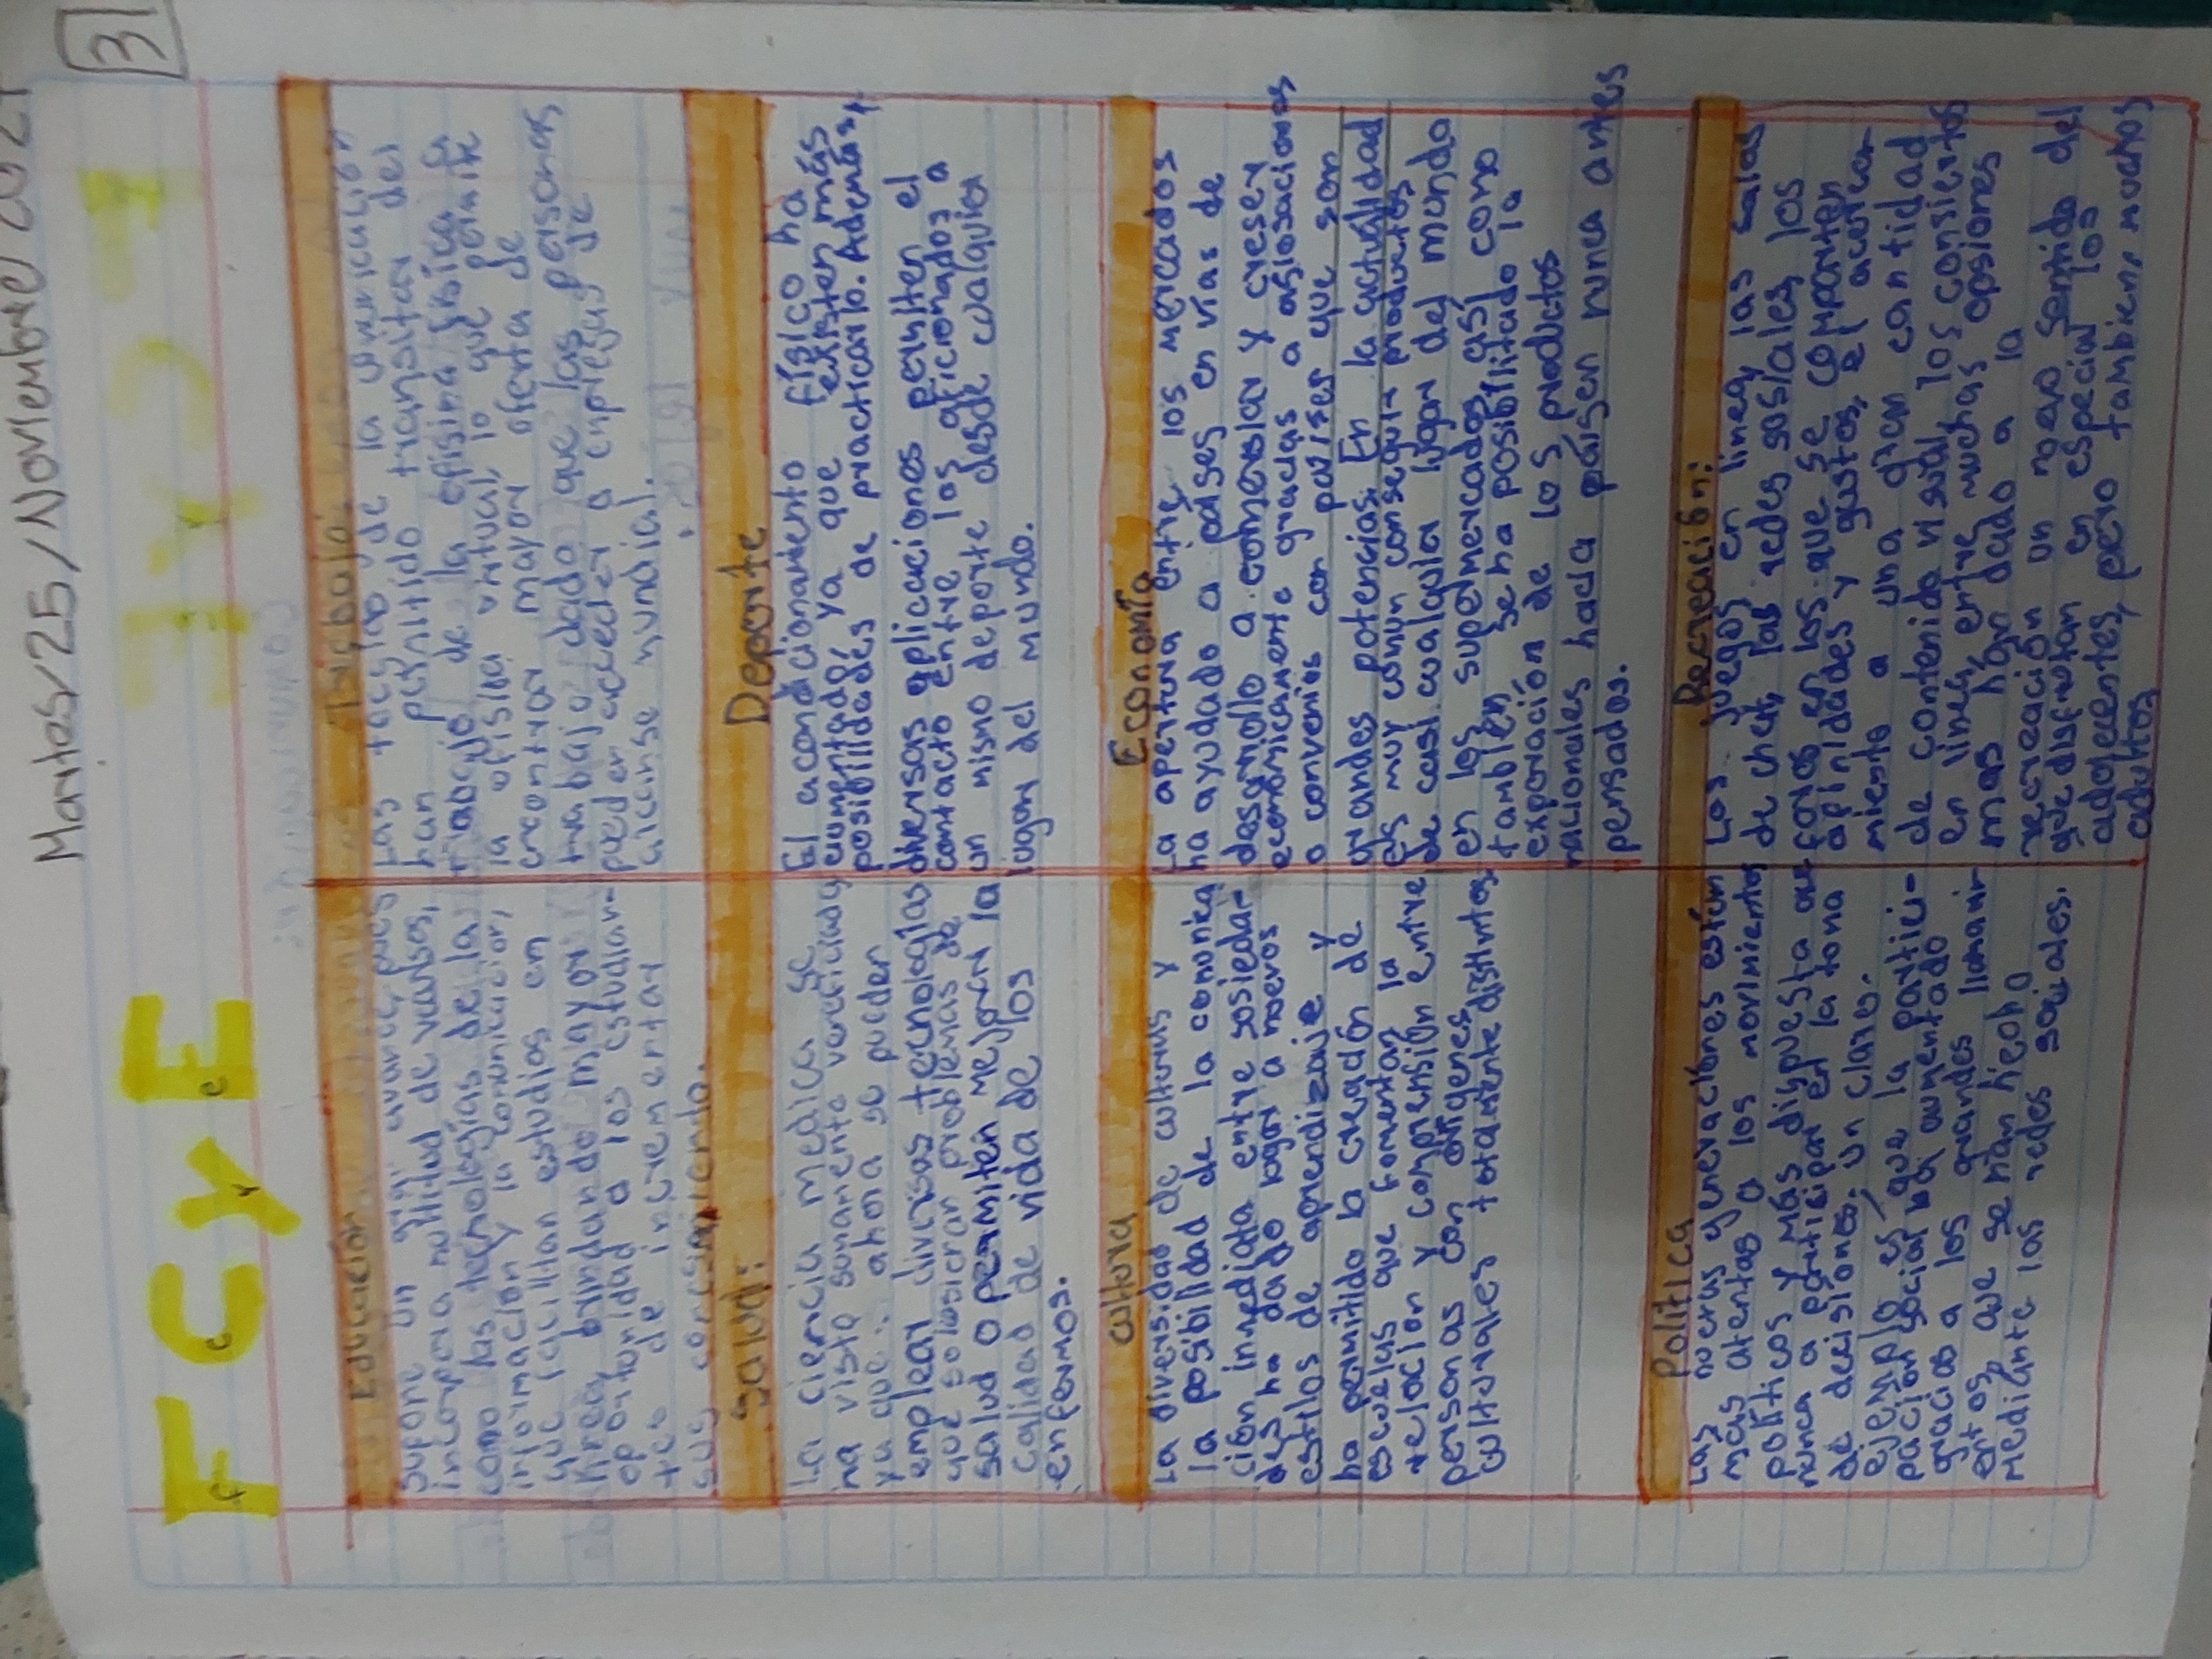 Martes/25/Noviembre/2021
3
F C Y E
Educación
Supone un gran avance, pues
incorpora multitud de recursos,
como las tecnologías de la
información y la comunicación,
que facilitan estudios en
línea, brindando mayor
oportunidad a los estudian-
tes de incrementar
sus conosimiento.
Trabajo:
Las tecnolog de la comunicación
han permitido transitar del
trabajo de la ofisina física a
la ofisina virtual, lo que permite
encontrar mayor oferta de
trabajo dado que las personas
pueden acceder a empresas de
alcanse mundial.
Salud:
La ciencia medica se
ha visto sumamente veneficiada
ya que ahora se pueden
emplear diversas tecnologías
que solusionan problemas de
salud o permiten mejoren la
calidad de vida de los
enfermos.
Deporte
El acondicionamiento físico ha
aumentado, ya que existen más
posibilidades de practicarlo. Además,
diversas aplicaciones permiten el
contacto entre los aficionados a
un mismo deporte desde cualquia
lugar del mundo.
Cultura
La diversidad de culturas y
la posibilidad de la comonica
ción inmediata entre sosieda-
des ha dado lugar a nuevos
estilos de aprendizaje y
ha permitido la creación de
escuelas que fomentan la
relación y comprensión entre
personas con origenes
culturales totalmente distintos
Economía
La apertura entre los mercados
ha ayudado a países en vías de
desarrollo a comenzar y creser
económicamente gracias a asosiasiones
o convenios con países que son
grandes potencias. En la actualidad
es muy común conseguir productos
de casi cualquier lugar del mundo
en los supermercados, así como
también se ha posibilitado la
exporación de los productos
nacionales hacia paisen nunca antes
pensados.
Politica
Las nuevas generaciones están
más atentas a los movimientos
políticos y más dispuesta que
nunca a participar en la toma
de decisiones. un claro
ejemplo es que la partici-
pación social ha aumentado
gracias a los grandes llamami-
entos que se han hecho
mediante las redes sociales.
Recreación:
Los juegos en linea, las salas
de chat, las redes sosiales, los
foros en los que se comparten
apinidades y gustos, el acercar
miento a una gran cantidad
de contenido visual, los consiertos
en linea, entre muchas opsiones
mas han dado a la
recreación un nuevo sentido del
que disfrutan en especial los
adolecentes, pero tambien muchos
adultos